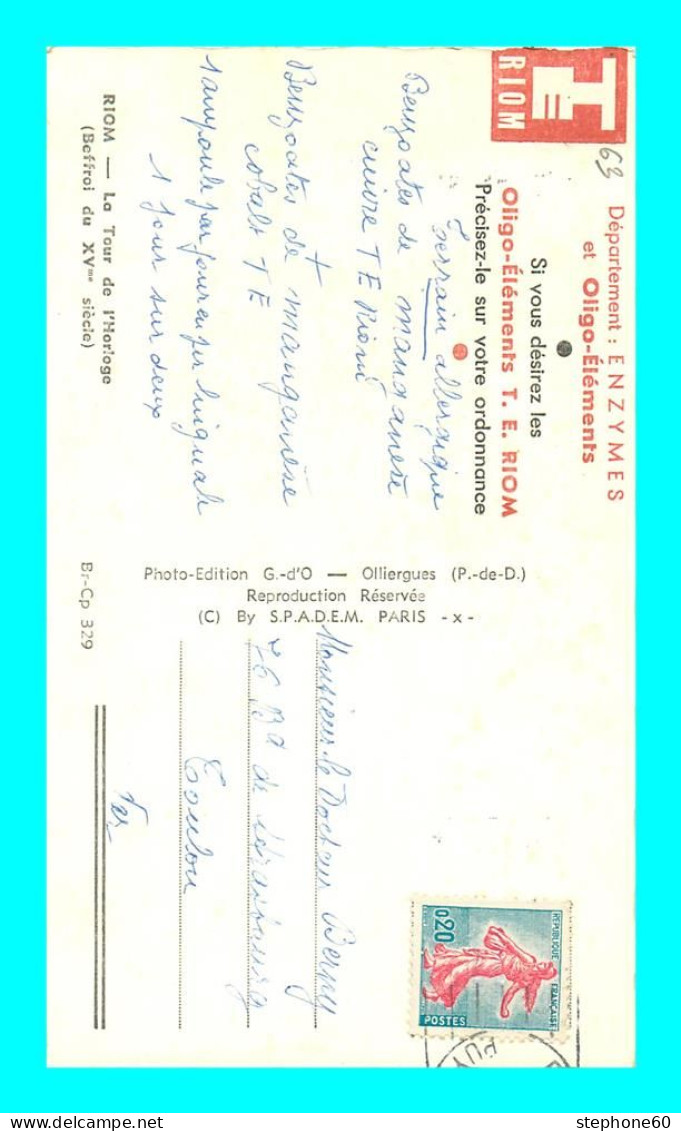 T
RIOM
63
Département : ENZYMES
et Oligo-Éléments
Si vous désirez les
Oligo-Éléments T. E. RIOM
Précisez-le sur votre ordonnance
Terrain allergique
Benzoates de manganèse
cuivre TE Riom
+
Benzoates de manganèse
cobalt TE
1 ampoule par jour en perlinguale
1 jour sur deux
RIOM — La Tour de l'Horloge
(Beffroi du XVme siècle)
Photo-Edition G.-d'O — Olliergues (P.-de-D.)
Reproduction Réservée
(C) By S.P.A.D.E.M. PARIS -x-
Br-Cp 329
Monsieur le Docteur Berny
76 Bd de Strasbourg
Toulon
Var
0,20
REPUBLIQUE FRANÇAISE
POSTES
PUY
stephone60